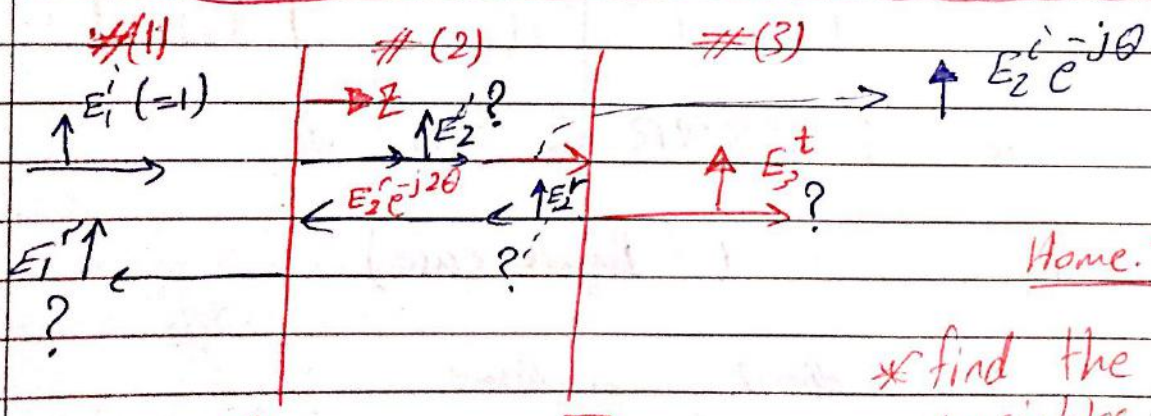 #(1) #(2) #(3)
E₂ⁱ e^-jθ
E₁ⁱ (=1) Z E₂ⁱ ?
E₂ʳ e^-j2θ E₂ʳ E₃ᵗ ?
E₁ʳ ?
Home.
?
* find the